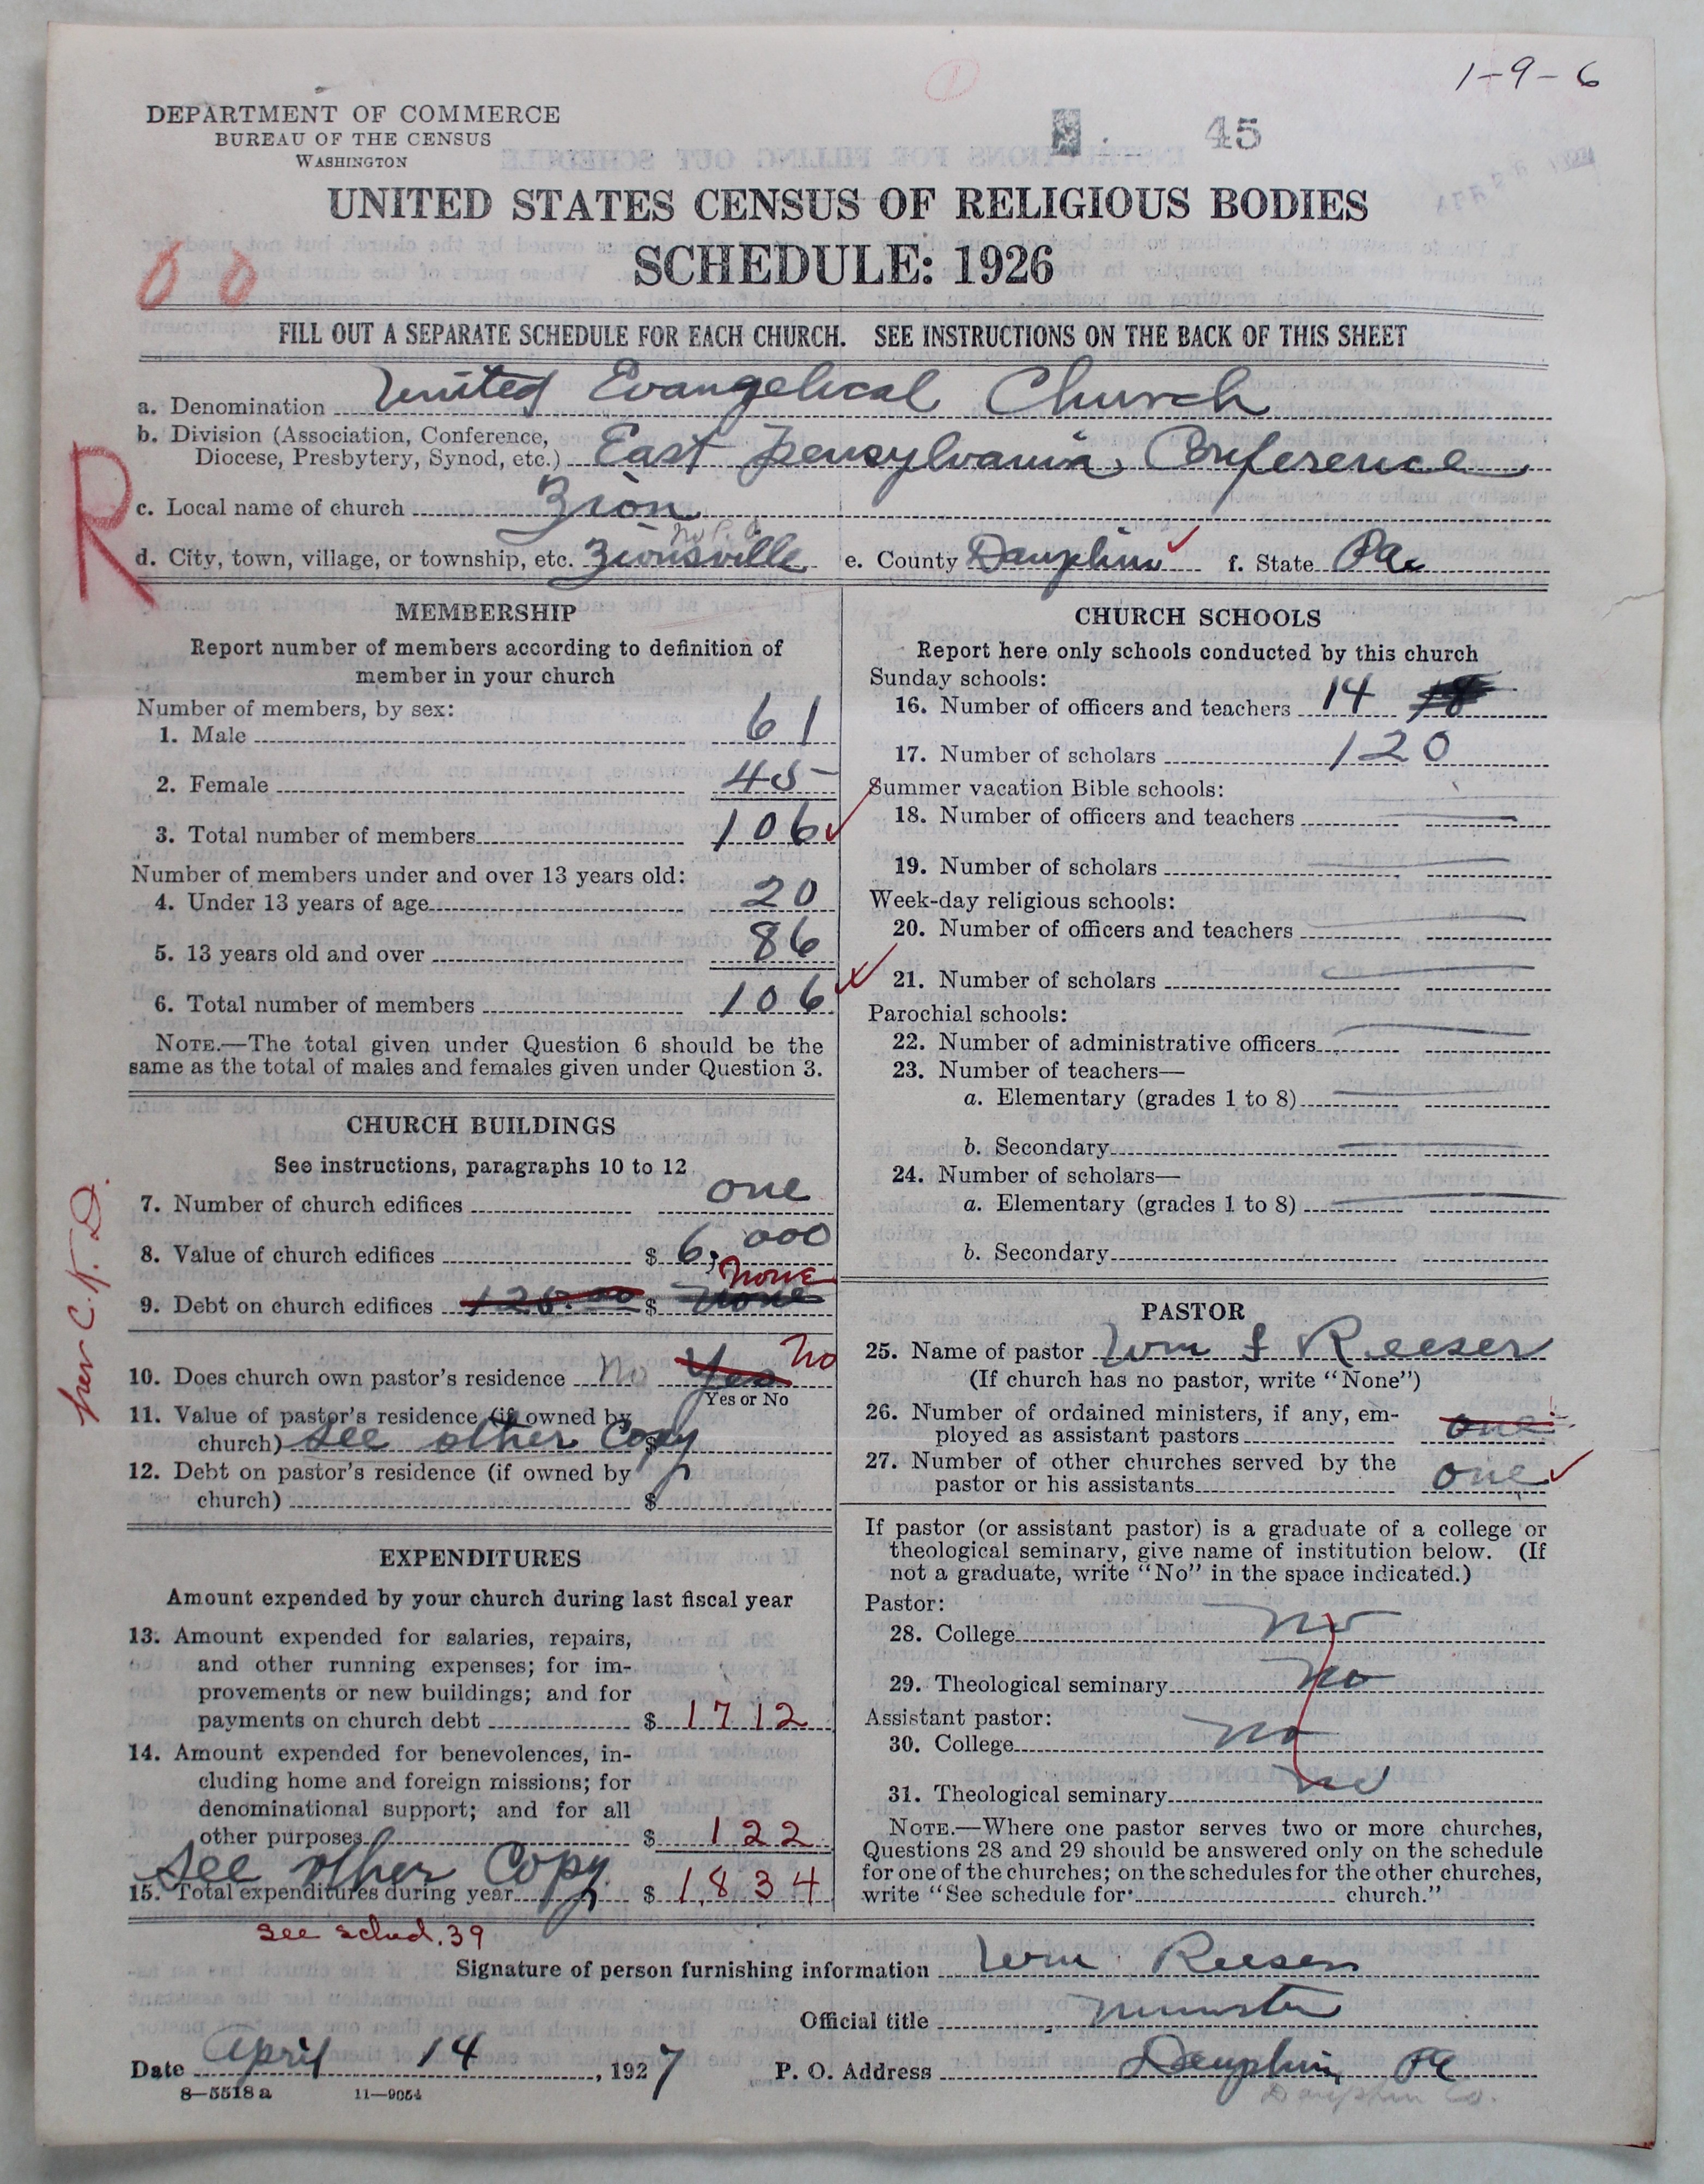 1-9-6
DEPARTMENT OF COMMERCE
BUREAU OF THE CENSUS
WASHINGTON
45
UNITED STATES CENSUS OF RELIGIOUS BODIES
SCHEDULE: 1926
0 0
FILL OUT A SEPARATE SCHEDULE FOR EACH CHURCH. SEE INSTRUCTIONS ON THE BACK OF THIS SHEET
a. Denomination United Evangelical Church
b. Division (Association, Conference,
Diocese, Presbytery, Synod, etc.) East Pensylvania, Conference
R
c. Local name of church Zion
no P.O.
d. City, town, village, or township, etc. Zionsville e. County Dauphin f. State Pa.
MEMBERSHIP
Report number of members according to definition of
member in your church
Number of members, by sex:
1. Male 61
2. Female 45
3. Total number of members 106
Number of members under and over 13 years old:
4. Under 13 years of age 20
5. 13 years old and over 86
6. Total number of members 106
NOTE.—The total given under Question 6 should be the
same as the total of males and females given under Question 3.
CHURCH BUILDINGS
See instructions, paragraphs 10 to 12
7. Number of church edifices one
8. Value of church edifices $ 6,000
none
9. Debt on church edifices 125.00 $ none
10. Does church own pastor's residence No Yes No
Yes or No
11. Value of pastor's residence (if owned by
church) See other Copy $
12. Debt on pastor's residence (if owned by
church) $
per C.K.D.
EXPENDITURES
Amount expended by your church during last fiscal year
13. Amount expended for salaries, repairs,
and other running expenses; for im-
provements or new buildings; and for
payments on church debt $ 1712
14. Amount expended for benevolences, in-
cluding home and foreign missions; for
denominational support; and for all
other purposes $ 122
See other Copy
15. Total expenditures during year $ 1834
see sched. 39
CHURCH SCHOOLS
Report here only schools conducted by this church
Sunday schools:
16. Number of officers and teachers 14
17. Number of scholars 120
Summer vacation Bible schools:
18. Number of officers and teachers
19. Number of scholars
Week-day religious schools:
20. Number of officers and teachers
21. Number of scholars
Parochial schools:
22. Number of administrative officers
23. Number of teachers—
a. Elementary (grades 1 to 8)
b. Secondary
24. Number of scholars—
a. Elementary (grades 1 to 8)
b. Secondary
PASTOR
25. Name of pastor Wm F Reeser
(If church has no pastor, write "None")
26. Number of ordained ministers, if any, em-
ployed as assistant pastors one
27. Number of other churches served by the
pastor or his assistants one
If pastor (or assistant pastor) is a graduate of a college or
theological seminary, give name of institution below. (If
not a graduate, write "No" in the space indicated.)
Pastor:
28. College No
29. Theological seminary No
Assistant pastor:
30. College No
31. Theological seminary No
NOTE.—Where one pastor serves two or more churches,
Questions 28 and 29 should be answered only on the schedule
for one of the churches; on the schedules for the other churches,
write "See schedule for church."
Signature of person furnishing information Wm Reeser
Official title minister
Date April 14, 1927 P. O. Address Dauphin, Pa
8—5518 a 11—9054 Dauphin Co.